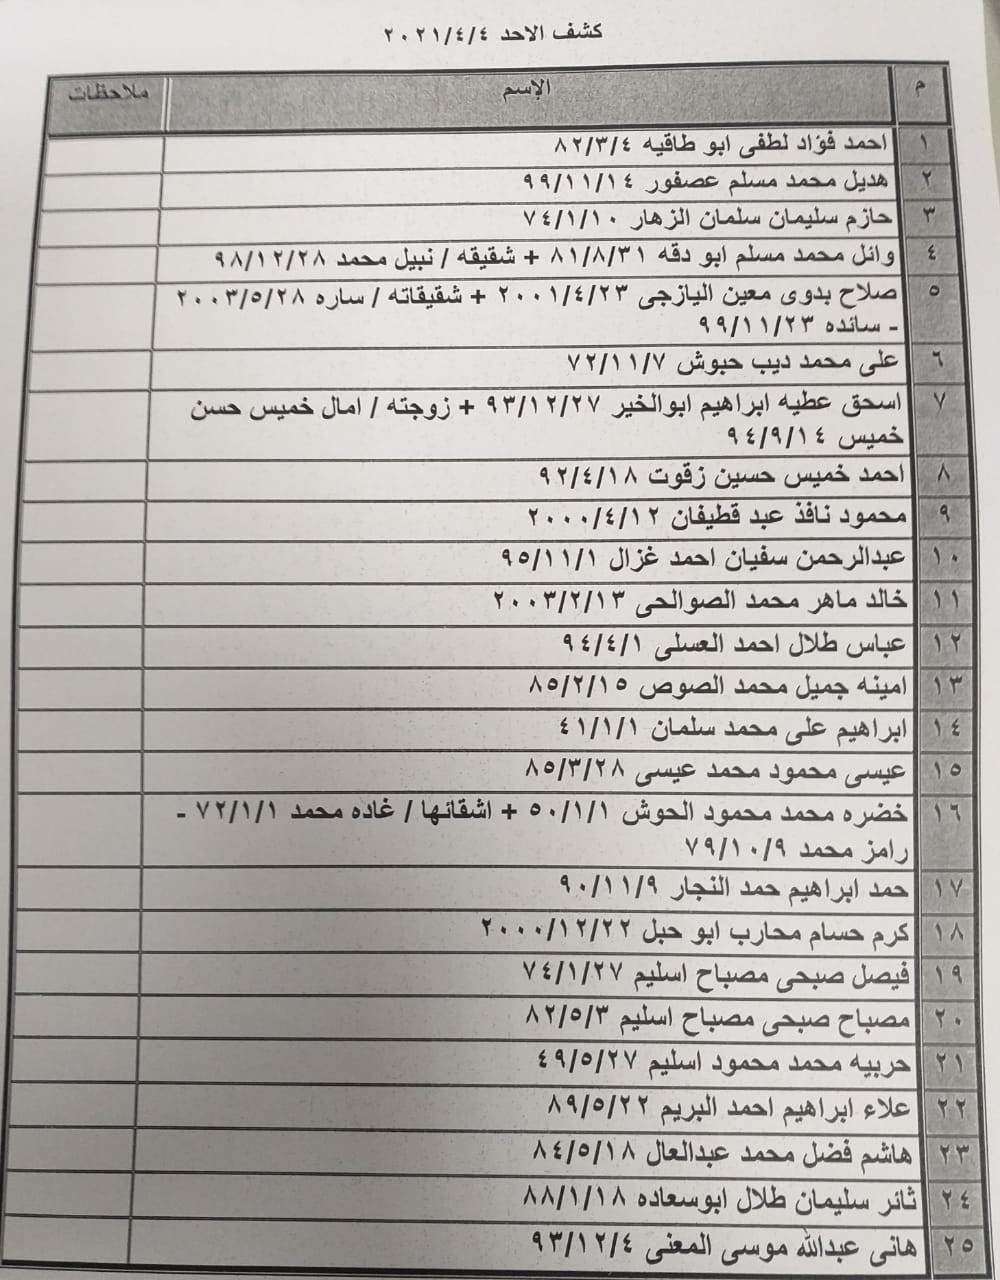 كشف الاحد ٢٠٢١/٤/٤
م الإسم ملاحظات
١ احمد فؤاد لطفى ابو طاقيه ٨٢/٣/٤
٢ هديل محمد مسلم عصفور ٩٩/١١/١٤
٣ حازم سليمان سلمان الزهار ٧٤/١/١٠
٤ وائل محمد مسلم ابو دقه ٨١/٨/٣١ + شقيقه / نبيل محمد ٩٨/١٢/٢٨
٥ صلاح بدوى معين اليازجى ٢٠٠١/٤/٢٣ + شقيقاته / ساره ٢٠٠٣/٥/٢٨
- سائده ٩٩/١١/٢٣
٦ على محمد ديب حبوش ٧٢/١١/٧
٧ اسحق عطيه ابراهيم ابوالخير ٩٣/١٢/٢٧ + زوجته / امال خميس حسن
خميس ٩٤/٩/١٤
٨ احمد خميس حسين زقوت ٩٢/٤/١٨
٩ محمود نافذ عبد قطيفان ٢٠٠٠/٤/١٢
١٠ عبدالرحمن سفيان احمد غزال ٩٥/١١/١
١١ خالد ماهر محمد الصوالحى ٢٠٠٣/٢/١٣
١٢ عباس طلال احمد العسلى ٩٤/٤/١
١٣ امينه جميل محمد الصوص ٨٥/٢/١٥
١٤ ابراهيم على محمد سلمان ٤١/١/١
١٥ عيسى محمود محمد عيسى ٨٥/٣/٢٨
١٦ خضره محمد محمود الحوش ٥٠/١/١ + اشقائها / غاده محمد ٧٢/١/١ -
رامز محمد ٧٩/١٠/٩
١٧ حمد ابراهيم حمد النجار ٩٠/١١/٩
١٨ كرم حسام محارب ابو حبل ٢٠٠٠/١٢/٢٢
١٩ فيصل صبحى مصباح اسليم ٧٤/١/٢٧
٢٠ مصباح صبحى مصباح اسليم ٨٢/٥/٣
٢١ حربيه محمد محمود اسليم ٤٩/٥/٢٧
٢٢ علاء ابراهيم احمد البريم ٨٩/٥/٢٢
٢٣ هاشم فضل محمد عبدالعال ٨٤/٥/١٨
٢٤ ثائر سليمان طلال ابوسعاده ٨٨/١/١٨
٢٥ هانى عبدالله موسى المعنى ٩٣/١٢/٤